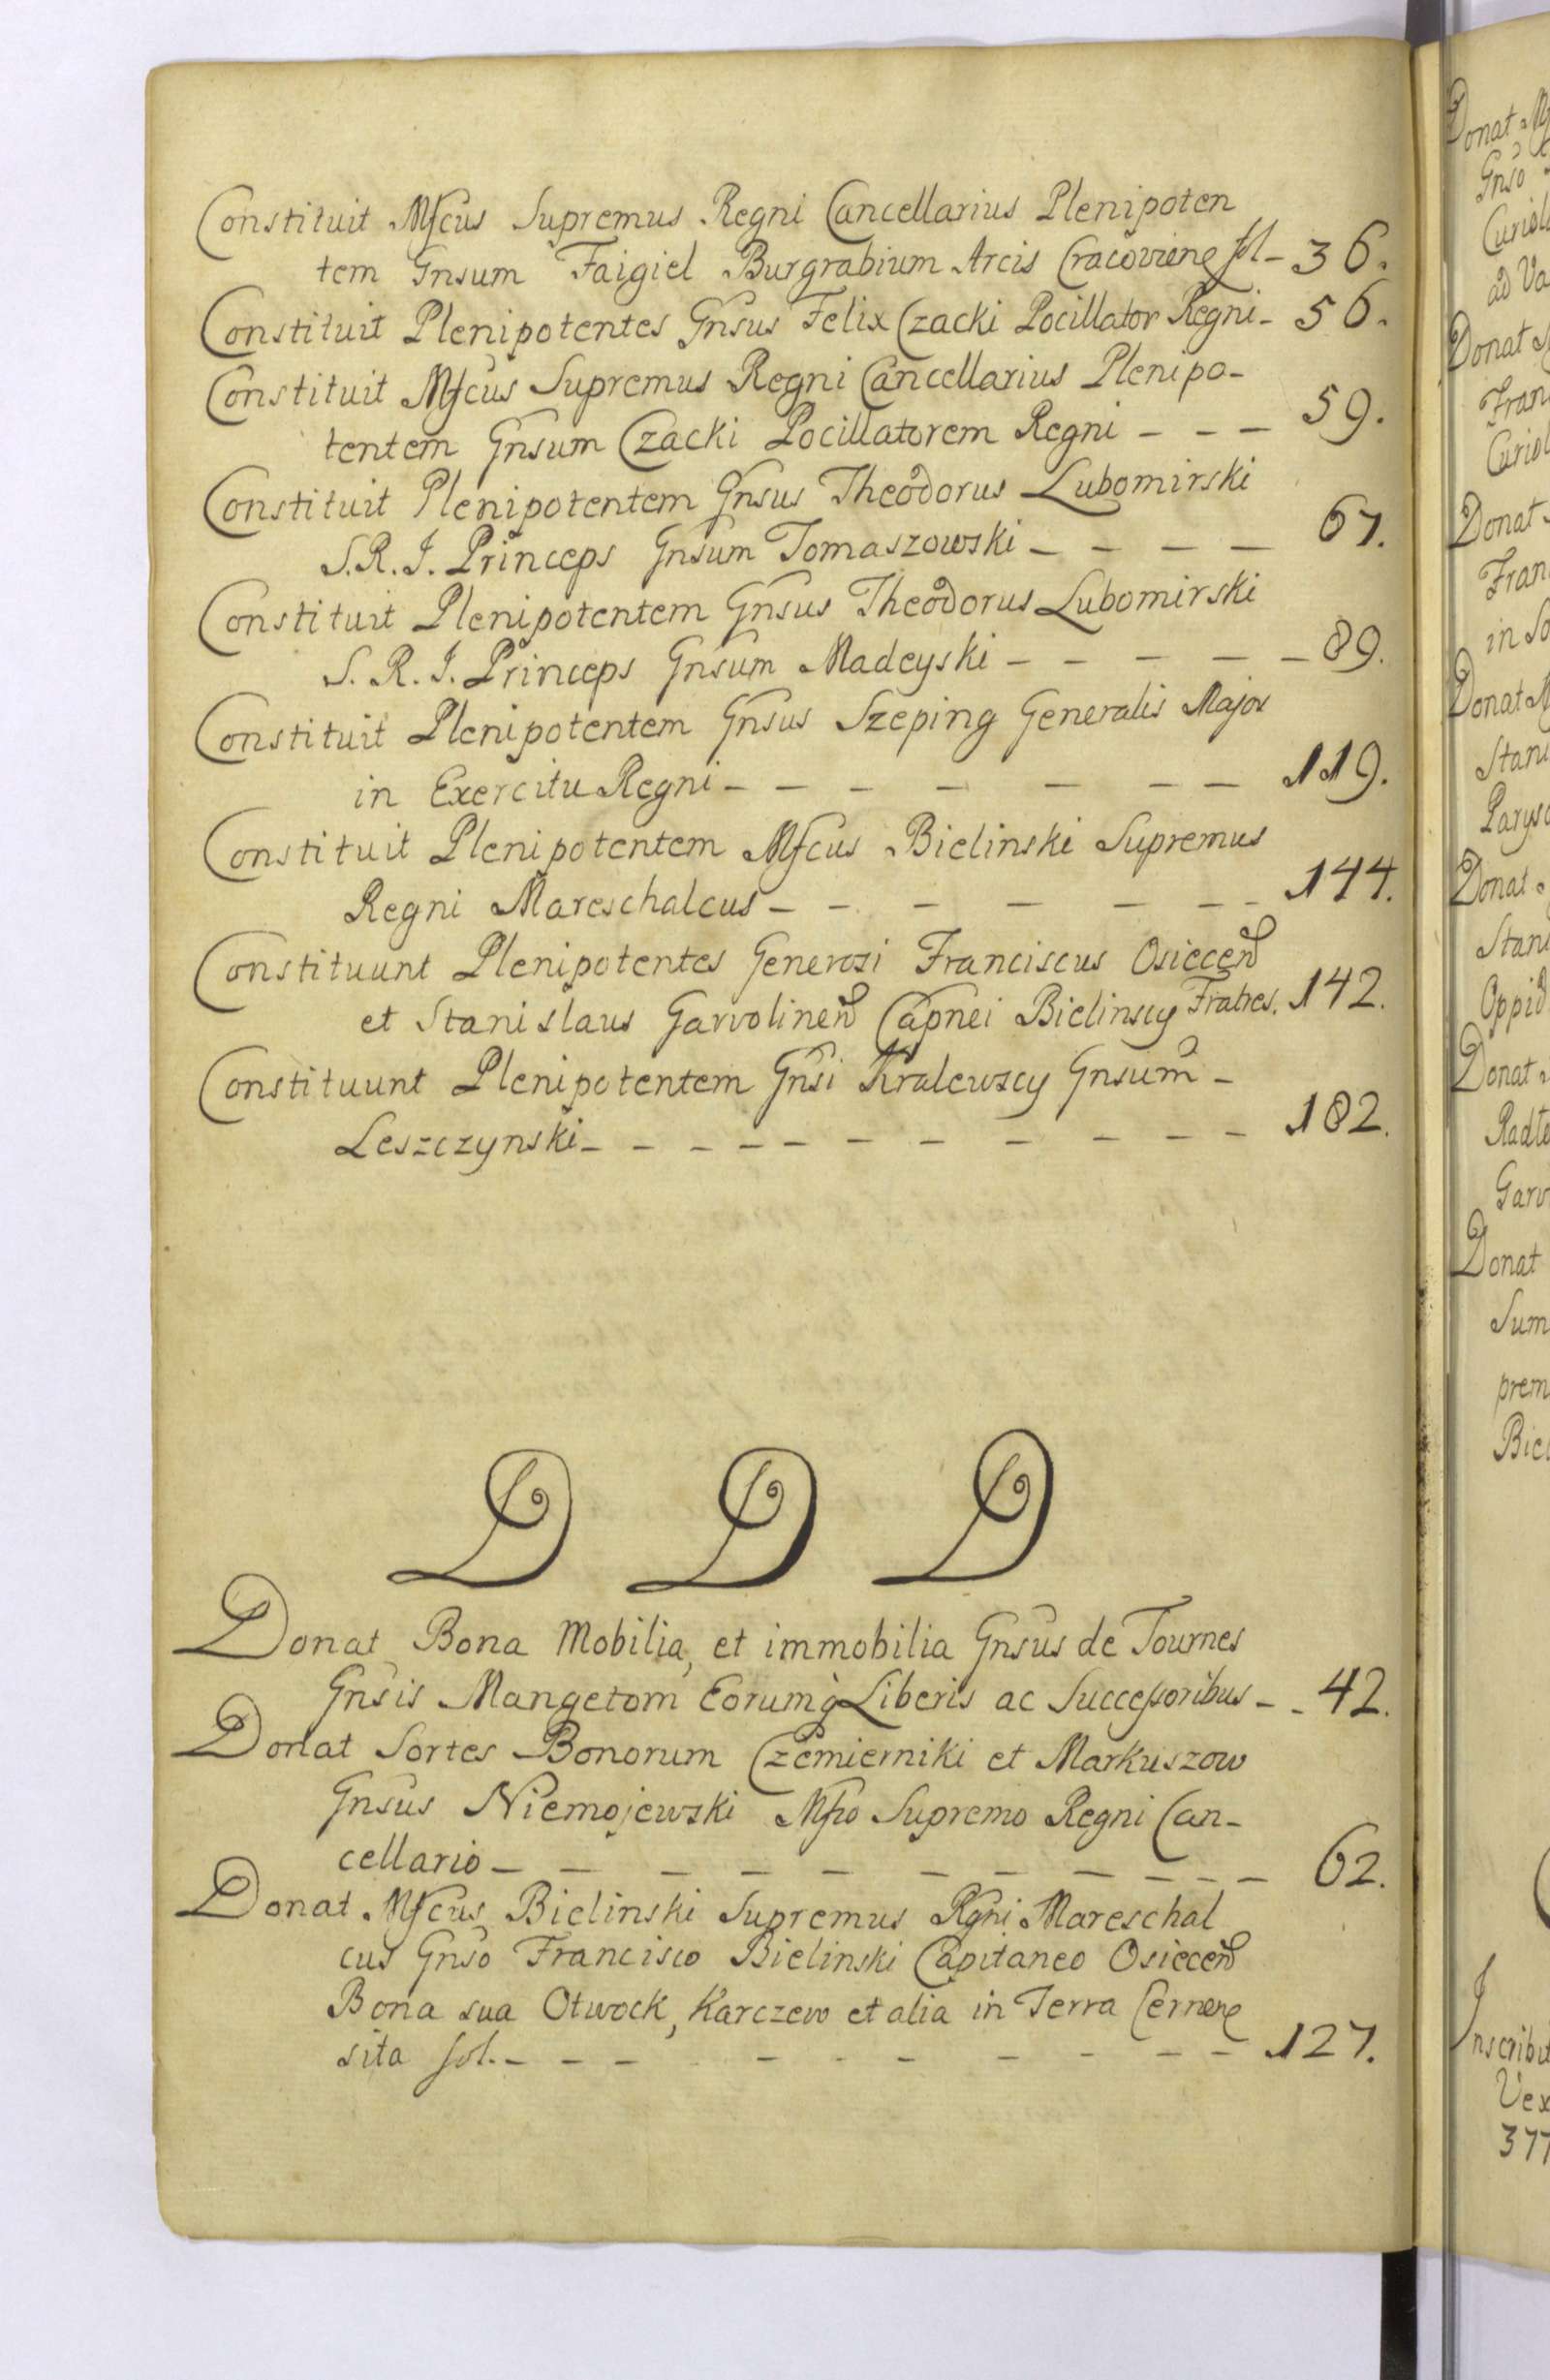 Constituit Mfcus Supremus Regni Cancellarius Plenipoten
tem Gnsum Faigiel Burgrabium Arcis Cracoviens fol - 36.
Constituit Plenipotentes Gnsus Felix Czacki Pocillator Regni - 56.
Constituit Mfcus Supremus Regni Cancellarius Plenipo-
tentem Gnsum Czacki Pocillatorem Regni - - - 59.
Constituit Plenipotentem Gnsus Theodorus Lubomirski
S.R.I. Princeps Gnsum Tomaszowski - - - - 67.
Constituit Plenipotentem Gnsus Theodorus Lubomirski
S. R. I. Princeps Gnsum Madeyski - - - - - 89.
Constituit Plenipotentem Gnsus Szeping Generalis Major
in Exercitu Regni - - - - - - - 119.
Constituit Plenipotentem Mfcus Bielinski Supremus
Regni Mareschalcus - - - - - - - 144.
Constituunt Plenipotentes Generosi Franciscus Osiecen
et Stanislaus Garvolinen Capnei Bielinscy Fratres. 142.
Constituunt Plenipotentem Gnsi Kralewscy Gnsum -
Leszczynski - - - - - - - - - - - 182.
D D D
Donat Bona Mobilia, et immobilia Gnsus de Tournes
Gnsis Mangetom Eorumq Liberis ac Successoribus - - 42.
Donat Sortes Bonorum Czemierniki et Markuszow
Gnsus Niemojewski Mfco Supremo Regni Can-
cellario - - - - - - - - - - - 62.
Donat Mfcus Bielinski Supremus Rgni Mareschal
cus Gnso Francisco Bielinski Capitaneo Osiecen
Bona sua Otwock, Karczew et alia in Terra Cernen
sita fol. - - - - - - - - - 127.
Donat
Gnso
ad Va
Donat
Fran
Donat
Fran
in So
Donat
Stani
Donat
Stani
Oppid
Donat
Radle
Garv
Donat
Sum
prem
Biel
Inscribit
Vex
377